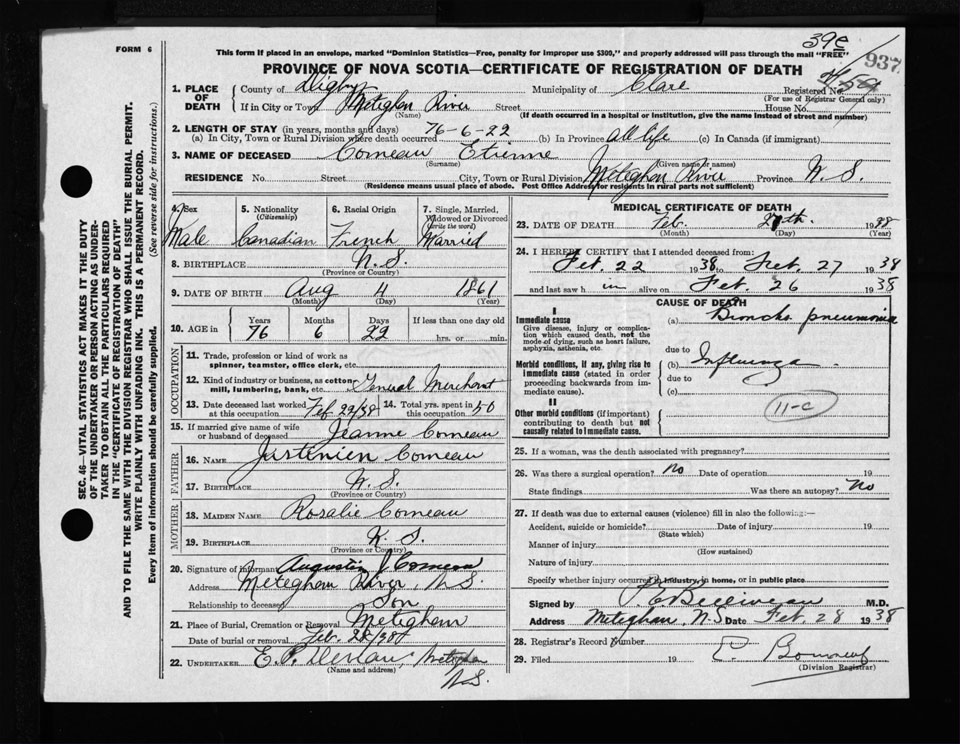 39c
937
FORM 6
This form if placed in an envelope, marked "Dominion Statistics—Free, penalty for improper use $300," and properly addressed will pass through the mail "FREE"
PROVINCE OF NOVA SCOTIA—CERTIFICATE OF REGISTRATION OF DEATH
1. PLACE OF DEATH
County of Digby Municipality of Clare Registered No.
(For use of Registrar General only)
If in City or Town Meteghan River Street House No.
(Name) (If death occurred in a hospital or Institution, give the name instead of street and number)
2. LENGTH OF STAY (in years, months and days)
(a) In City, Town or Rural Division where death occurred 76-6-22 (b) In Province all life (c) In Canada (if immigrant)
3. NAME OF DECEASED Comeau Etienne
(Surname) (Given name or names)
RESIDENCE No. Street City, Town or Rural Division Meteghan River Province N. S.
(Residence means usual place of abode. Post Office Address for residents in rural parts not sufficient)
4. Sex
Male
5. Nationality
(Citizenship)
Canadian
6. Racial Origin
French
7. Single, Married, Widowed or Divorced
(Write the word)
Married
8. BIRTHPLACE N. S.
(Province or Country)
9. DATE OF BIRTH Aug 4 1861
(Month) (Day) (Year)
10. AGE in
Years Months Days If less than one day old
76 6 22 hrs. or min.
OCCUPATION
11. Trade, profession or kind of work as
spinner, teamster, office clerk, etc.
12. Kind of industry or business, as cotton
mill, lumbering, bank, etc. General Merchant
13. Date deceased last worked at this occupation Feb 22/38 14. Total yrs. spent in this occupation 50
15. If married give name of wife or husband of deceased Jeanne Comeau
FATHER
16. NAME Justinien Comeau
17. BIRTHPLACE N. S.
(Province or Country)
MOTHER
18. MAIDEN NAME Rosalie Comeau
19. BIRTHPLACE N. S.
(Province or Country)
20. Signature of informant Augustin J Comeau
Address Meteghan River, N. S.
Relationship to deceased Son
21. Place of Burial, Cremation or Removal Meteghan
Date of burial or removal Feb.
22. UNDERTAKER E. P. Meteghan
(Name and address) N. S.
MEDICAL CERTIFICATE OF DEATH
23. DATE OF DEATH Feb. 27th. 1938
(Month) (Day) (Year)
24. I HEREBY CERTIFY that I attended deceased from:
Feb. 22 1938 to Feb. 27 1938
and last saw h im alive on Feb. 26 1938
CAUSE OF DEATH
I
Immediate cause
Give disease, injury or complication which caused death, not the mode of dying, such as heart failure, asphyxia, asthenia, etc.
(a) Broncho pneumonia
due to
Morbid conditions, if any, giving rise to immediate cause (stated in order proceeding backwards from immediate cause).
(b) Influenza
due to
(c)
II
Other morbid conditions (if important) contributing to death but not causally related to immediate cause.
11-c
25. If a woman, was the death associated with pregnancy?
26. Was there a surgical operation? No Date of operation 19
State findings Was there an autopsy? No
27. If death was due to external causes (violence) fill in also the following:—
Accident, suicide or homicide? Date of injury 19
(State which)
Manner of injury
(How sustained)
Nature of injury
Specify whether injury occurred in industry, in home, or in public place
Signed by P. E. Belliveau M.D.
Address Meteghan, N.S Date Feb. 28 1938
28. Registrar's Record Number
29. Filed 19
(Division Registrar)
SEC. 46—VITAL STATISTICS ACT MAKES IT THE DUTY
OF THE UNDERTAKER OR PERSON ACTING AS UNDERTAKER TO OBTAIN ALL THE PARTICULARS REQUIRED
IN THE "CERTIFICATE OF REGISTRATION OF DEATH"
AND TO FILE THE SAME WITH THE DIVISION REGISTRAR WHO SHALL ISSUE THE BURIAL PERMIT.
WRITE PLAINLY WITH UNFADING INK. THIS IS A PERMANENT RECORD.
Every item of information should be carefully supplied. (See reverse side for instructions.)